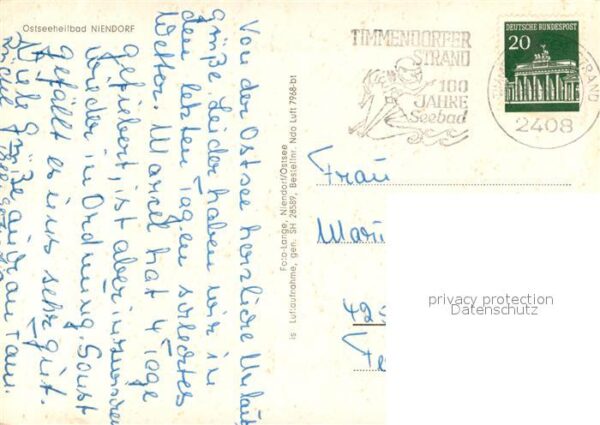 Ostseeheilbad NIENDORF
Von der Ostsee herzliche Urlaub
grüße. Leider haben wir in
den letzten Tagen schlechtes
Wetter. Marcel hat 4 Tage
gefiebert, ist aber inzwischen
wieder in Ordnung. Sonst
gefällt es uns sehr gut.
Viele Grüße auch an Fam.
is Luftaufnahme, gen. SH 28589, Bestellnr. Ndo Luft 7968-b1
Foto-Lange, Niendorf/Ostsee
TIMMENDORFER
STRAND
100
JAHRE
Seebad
DEUTSCHE BUNDESPOST
20
STRAND
2408
Frau
privacy protection
Datenschutz